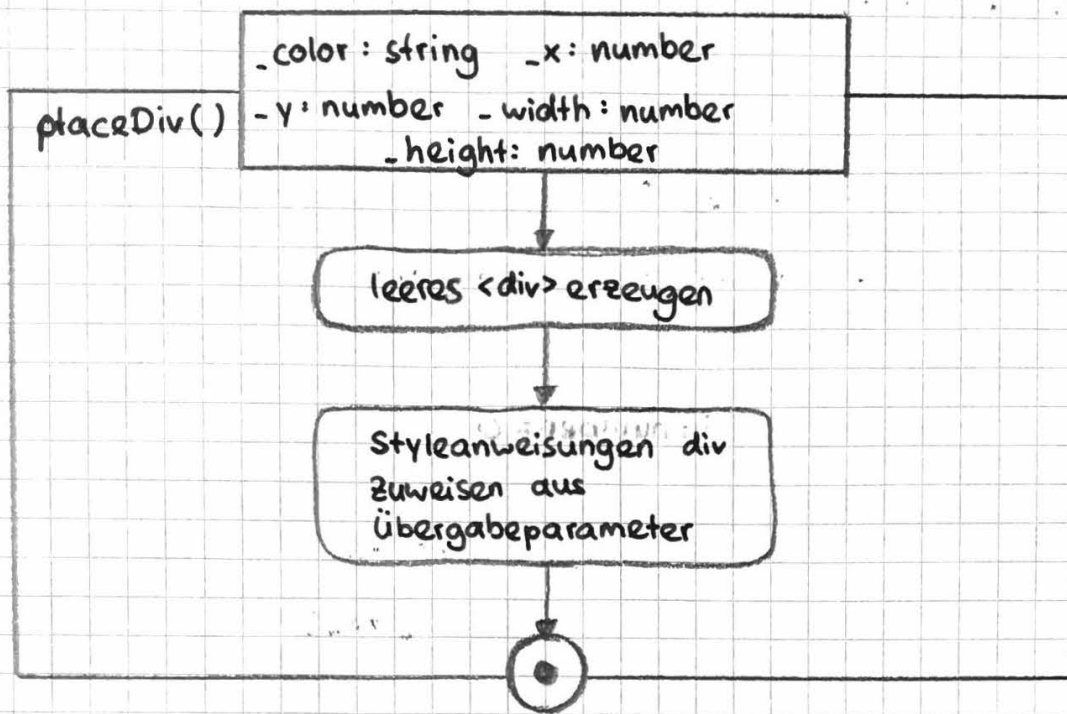 _color : string _x : number
placeDiv() _y : number _width : number
_height : number
leeres <div> erzeugen
Styleanweisungen div
zuweisen aus
Übergabeparameter